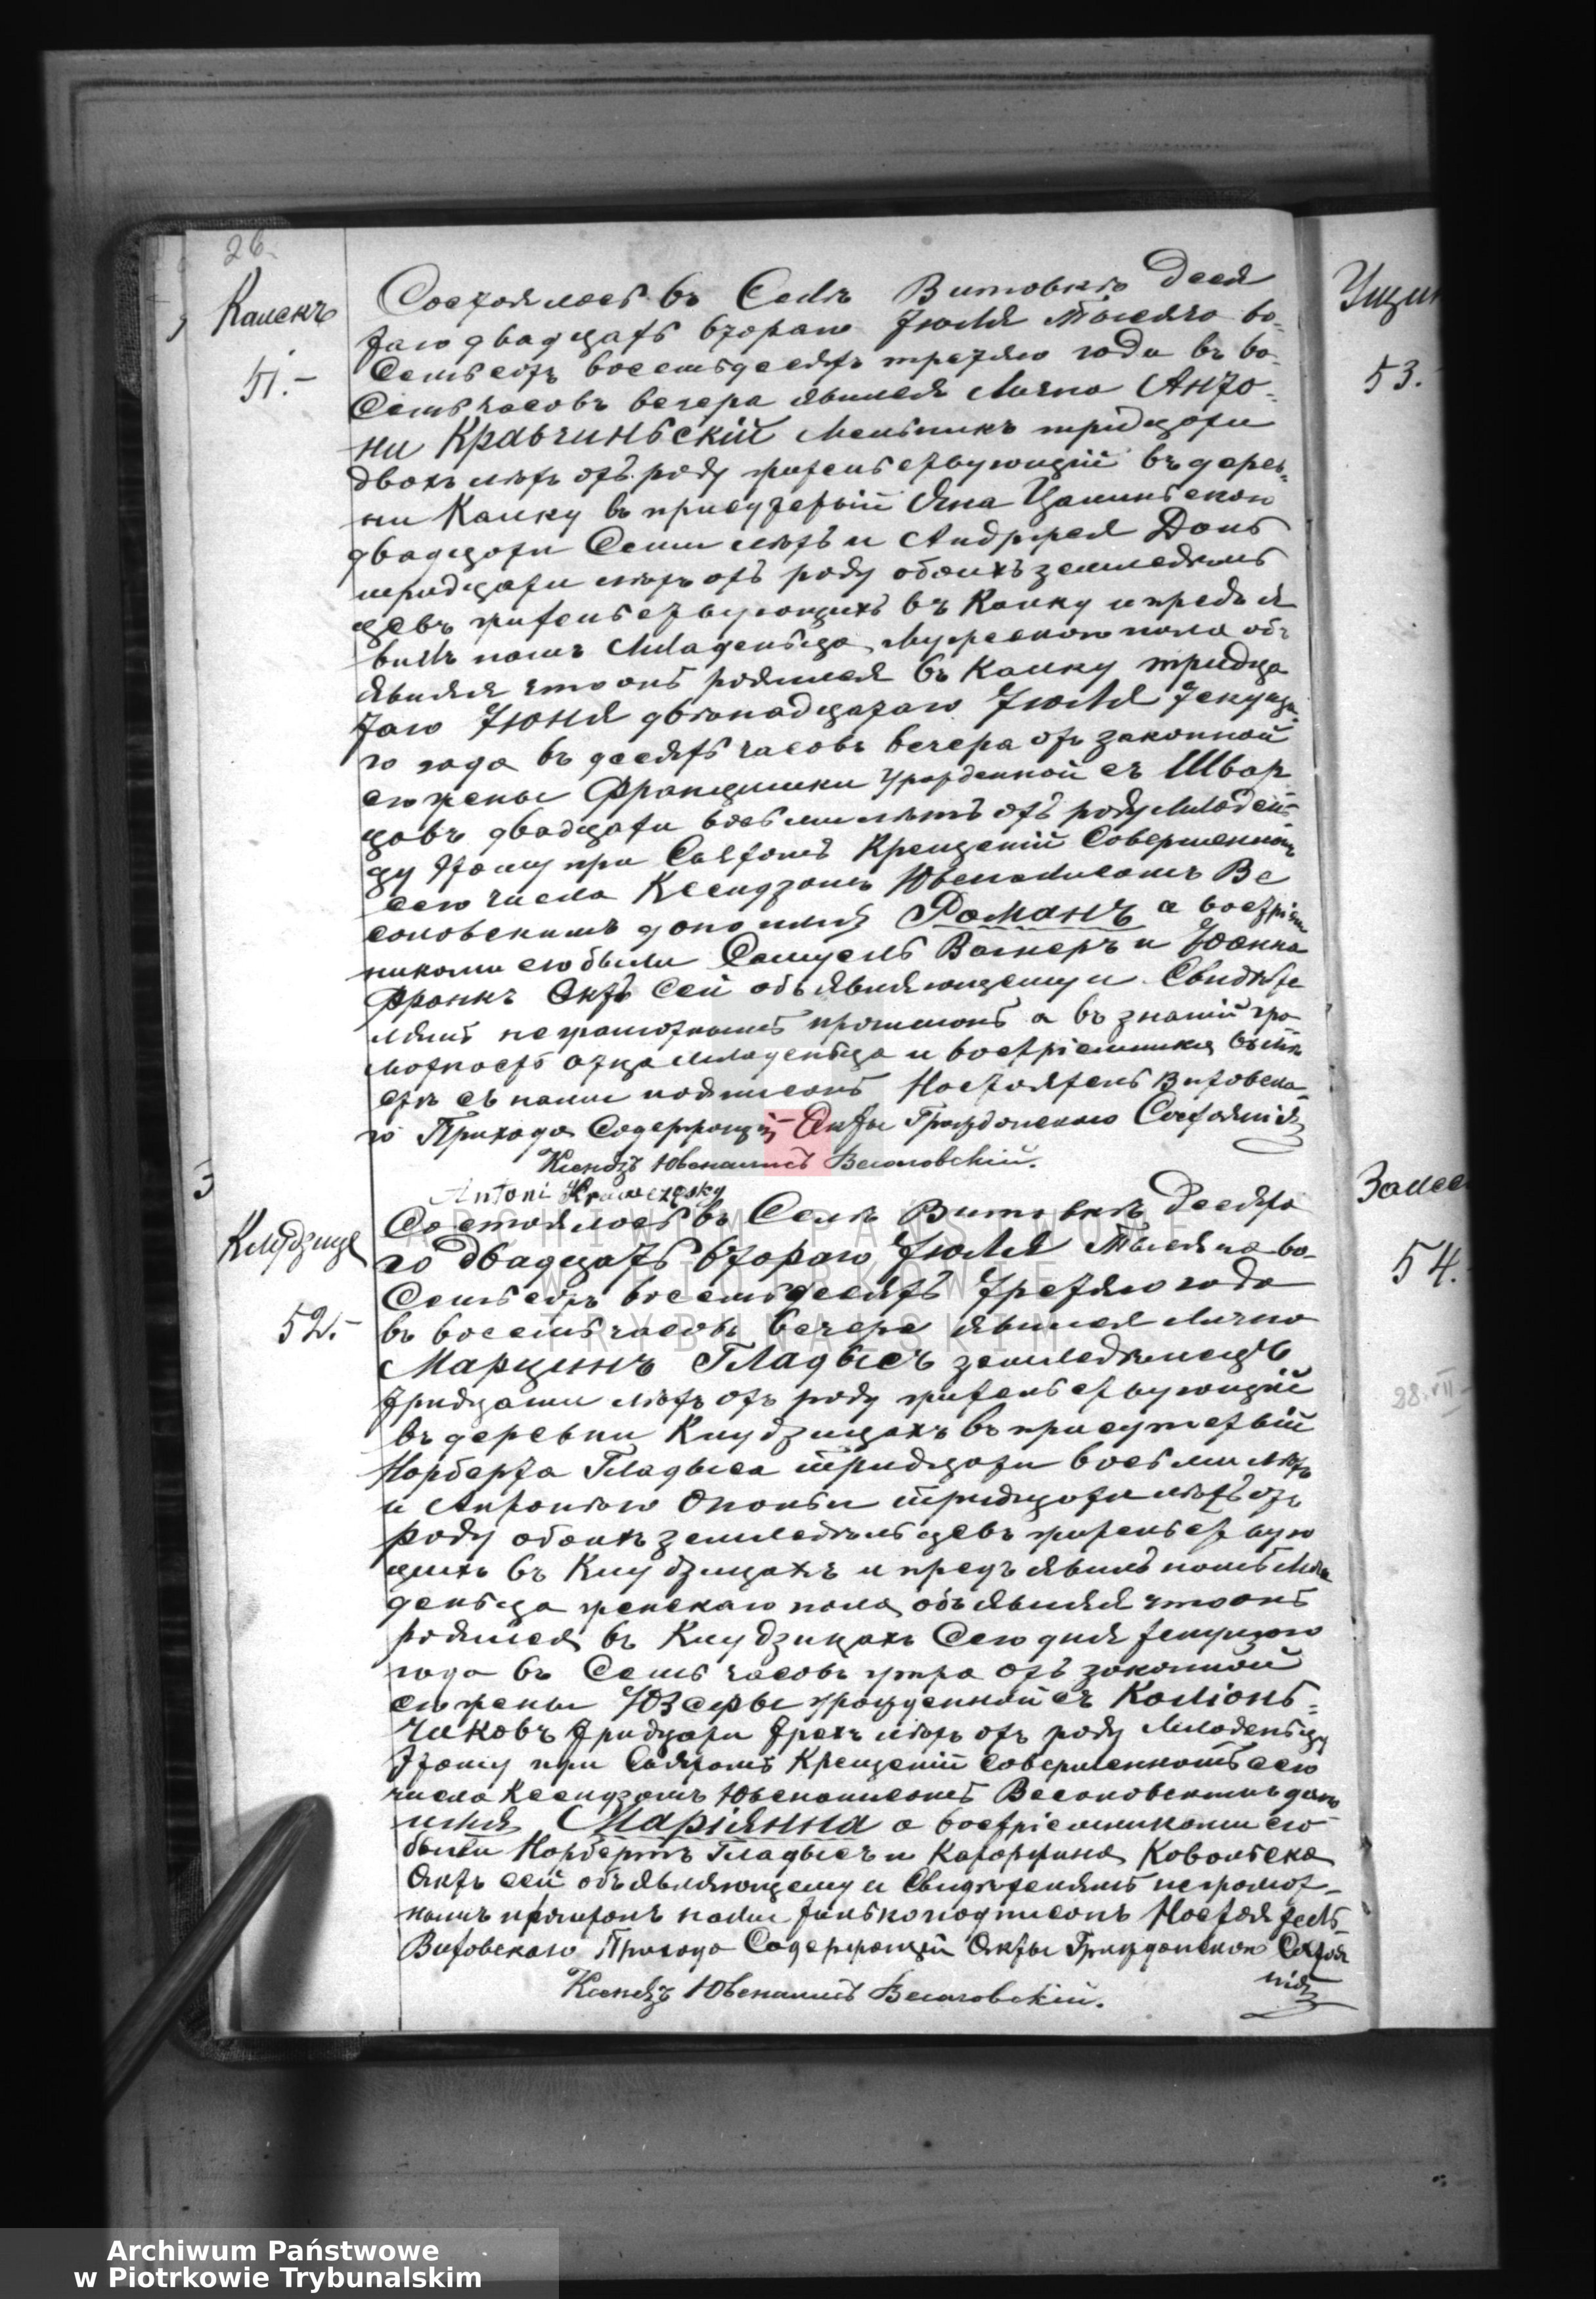 26.
Каленъ
51.-
Состоялось въ Селѣ Витовкѣ Деся
таго двадцать втораго Іюля Тысяча во-
семьсотъ восемьдесятъ третяго года въ во-
семь часовъ вечера явился лично Анто-
ни Кравчиньскій Мельникъ тридцати
двохъ лѣтъ отъ роду жительствующій въ дерев-
ни Калку въ присутствіи Яна
двадцати Семи лѣтъ и Андржея
тридцати лѣтъ отъ роду обоихъ земледѣль
цевъ жительствующихъ въ Калку и предъя
вилъ намъ Младеньца Мужескаго пола объ
являя что онъ родился въ Калку тридца
таго Іюня двѣнадцатаго Іюля Текуща-
го года въ десять часовъ вечера отъ законной
его жены Францишки урожденной съ Швар
цовъ двадцати восьми лѣтъ отъ роду Младень
цу этому при Святомъ Крещеніи Совершенномъ
сего числа Ксендзомъ Ювеналисомъ Ве
соловскимъ дано имя Романъ а воспріем
никами его были Самуель Вагнеръ и
Франкъ Актъ Сей объявляющему и Свидѣте
лямъ неграмотнымъ прочитанъ а въ знаній гра
мотность отца младеньца и воспріемника
съ нами подписанъ Настоятель Витовска-
го Прихода Содержащій Акты Гражданскаго Состоянія
Ксендзъ Ювеналисъ Веселовскій.
Antoni Krawczęsky
Клудзице
52.-
Состоялось въ Селѣ Витовкѣ Десята
го Двадцать Втораго Іюля Тысяча во-
Семьсотъ восемьдесятъ Третяго года
въ восемь часовъ вечера явился лично
Марцинъ Гладысъ земледѣлецъ
тридцати лѣтъ отъ роду жительствующій
въ деревни Клудзицахъ въ присутствій
Норберта Гладыса тридцати восьми лѣтъ
и тридцати лѣтъ отъ
роду обоихъ земледѣльцевъ жительствую
щихъ въ Клудзицахъ и предъявилъ намъ Мла
деньца женскаго пола объявляя что онъ
родился въ Клудзицахъ Сего дня текущаго
года въ Семь часовъ утра отъ законной
его жены Юзефы урожденной съ Каліонь-
чиковъ тридцати трехъ лѣтъ отъ роду Младеньцу
этому при Святомъ Крещеній совершенномъ сего
числа Ксендзомъ Ювеналисомъ Веселовскимъ дано
имя Маріянна а воспріемниками его
были Норбертъ Гладысъ и Катаржина Ковальска
Актъ сей объявляющему и Свидѣтелямъ неграмот-
нымъ прочитанъ нами только подписанъ Настоятель
Витовскаго Прихода Содержащій Акты Гражданскаго Состоя
нія
Ксендзъ Ювеналисъ Веселовскій.
53.
54.
28.VII
ARCHIWUM PAŃSTWOWE
W PIOTRKOWIE
TRYBUNALSKIM
Archiwum Państwowe
w Piotrkowie Trybunalskim